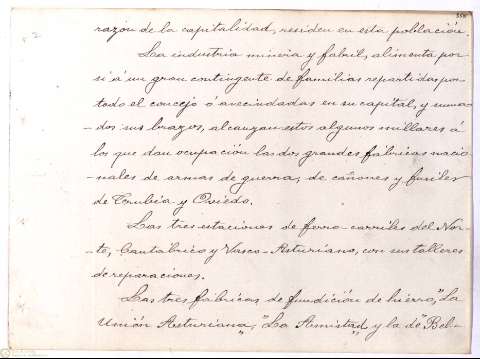 razón de la capitalidad, residen en esta población.
La industria minera y fabril, alimenta por
si á un gran contingente de familias repartidas por
todo el concejo ó avecindadas en su capital, y suma-
-dos sus brazos, alcanzan estos algunos millares á
los que dan ocupación las dos grandes fábricas nacio-
-nales de armas de guerra, de cañones y fusiles
de Trubia y Oviedo.
Las tres estaciones de ferro-carriles del Nor-
te, Cantábrico y Vasco-Asturiano, con sus talleres
de reparaciones.
Las tres fábricas de fundición de hierro, "La
Unión Asturiana," "La Amistad," y la de "Bel-